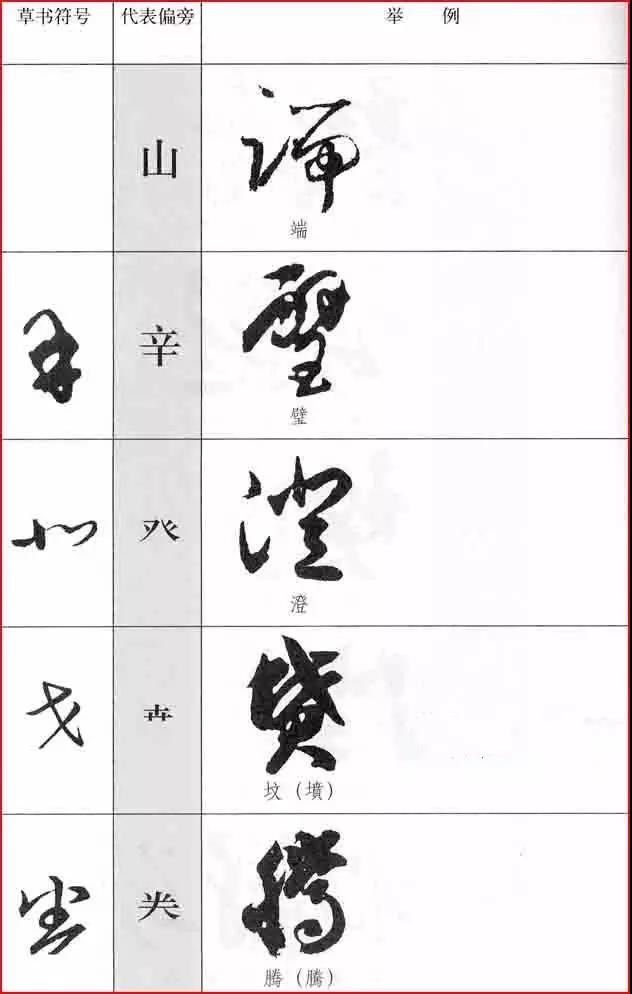 草书符号 代表偏旁 举例
山 端
辛 璧
癶 澄
卉 坟（墳）
龹 腾（騰）